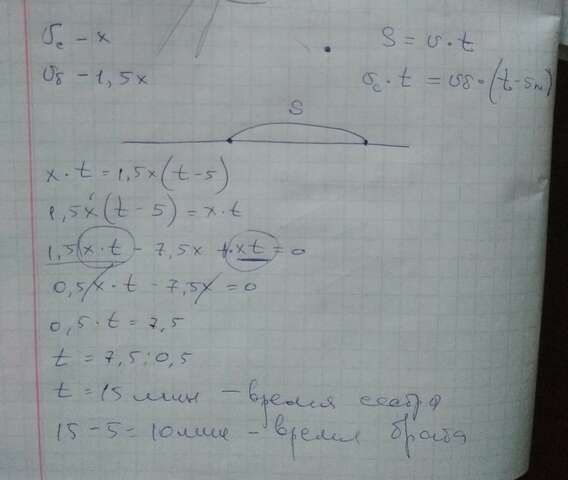 υс – x
S = υ · t
υб – 1,5x
υс · t = υб · (t – 5м)
S
x · t = 1,5x (t – 5)
1,5x (t – 5) = x · t
1,5 (x · t) – 7,5x – xt = 0
0,5x · t – 7,5x = 0
0,5 · t = 7,5
t = 7,5 : 0,5
t = 15 мин – время сестра
15 – 5 = 10 мин – время брата